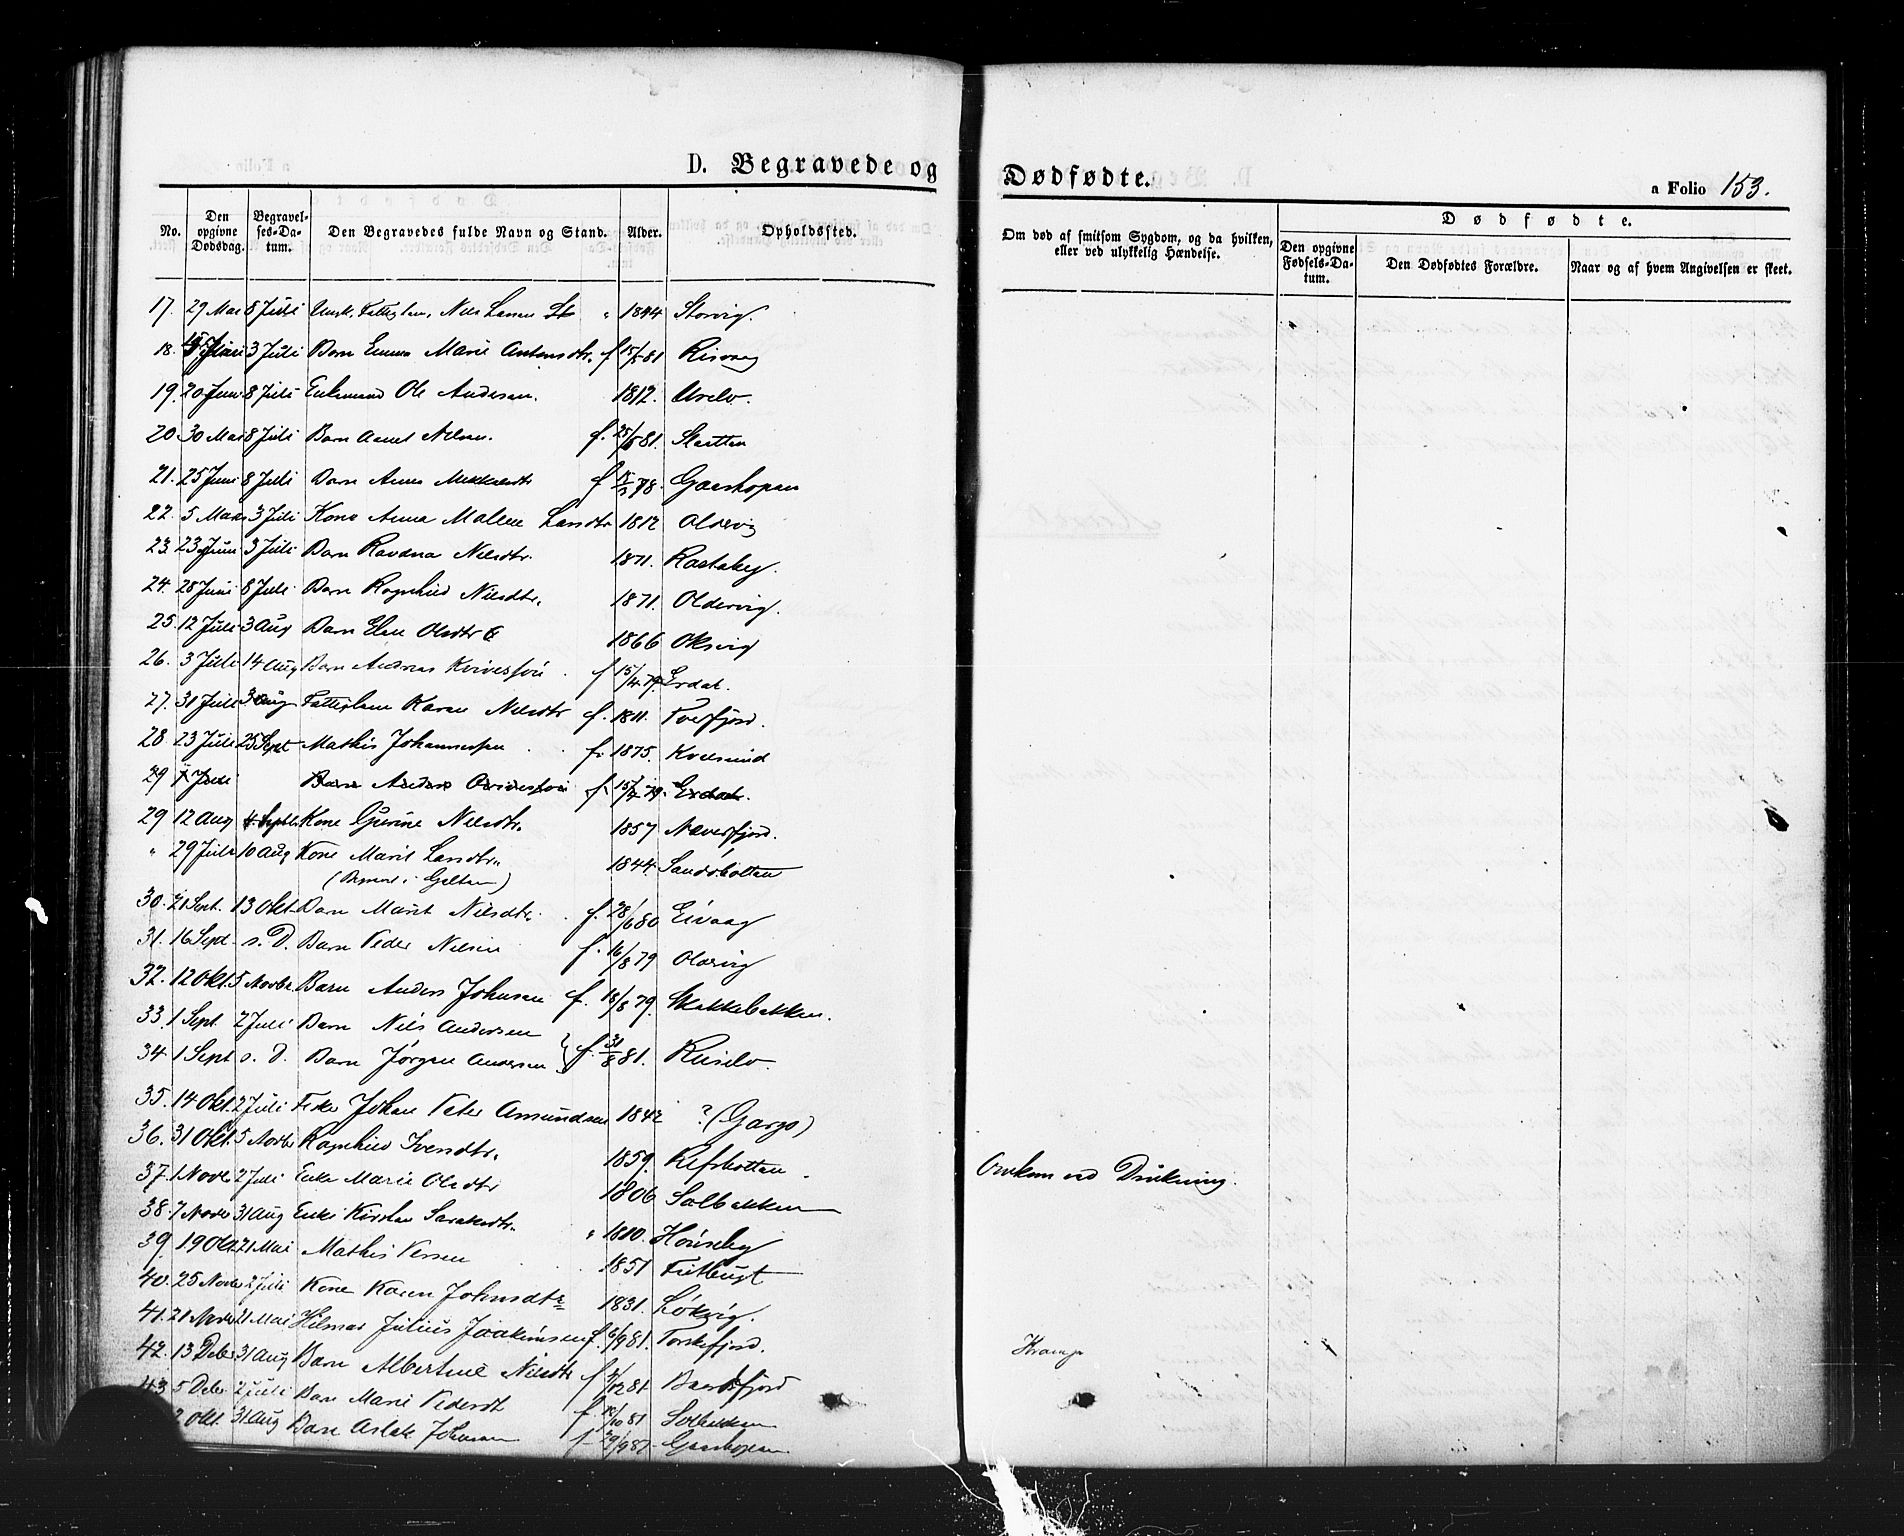 D. Begravede og Dødfødte.
a Folio 153.
No. Den opgivne Dødsdag. Begravelses-Datum. Den Begravedes fulde Navn og Stand. Alder. Opholdssted. Om død af smitsom Sygdom, og da hvilken, eller ved ulykkelig Hændelse. Dødfødte. Den opgivne Fødsels-Datum. Den Dødfødtes Forældre. Naar og af hvem Angivelsen er skeet.
17. 29 Mai 8 Juli Nils Larsen " 1844 Storvig.
18. 3 Juli Barn Emma Marie Antonsdtr. f 15/5 81 Risvaag
19. 20 Juni 8 Juli Enkemand Ole Andersen. 1812.
20 30 Mai 8 Juli Barn Nilsen. f. 25/5 81. Skaitten
21. 25 Juni 8 Juli Barn Anne Mikkelsdtr f 78. Gaashopen
22. 5 Mars 3 Juli Kone Anna Malene Larsdtr 1812 Oldervig
23. 23 Juni 3 Juli Barn Ravdna Nilsdtr. 1871. Rastaby.
24. 28 Juni 8 Juli Barn Ragnhild Nilsdtr. 1871. Oldervig.
25. 12 Juli 3 Aug Barn Elen Olsdtr 1866 Oksvig
26. 3 Juli 14 Aug Barn Andreas f 15/4 79. Erdal.
27. 31 Juli 3 Aug Fattiglem Karen Nilsdtr f. 1811. Tverfjord.
28. 23 Juli 25 Sept Mathis Johannessen f. 1875. Kvalsund
29 Juli Barn Anders f. 15/4 79. Erdal.
29 12 Aug 4 Septb Kone Gurine Nilsdtr. 1857 Næverfjord.
" 29 Juli 10 Aug Kone Marit Larsdtr. 1844 Sandøbotten
(Begravet i Galten)
30. 21 Sept. 13 Okt. Barn Marit Nilsdtr. f. 28/6 80 Eivaag
31. 16 Sept. s. D. Barn Peder Nilsen f. 16/8 79 Oldervig
32. 12 Okt. 5 Novbr Barn Anders Johnsen f. 18/8 79. Skakkebakken.
33. 1 Sept. 2 Juli Barn Nils Andersen
34 1 Sept s. d. Barn Jørgen Andersen } f. 31/8 81. Ruselv.
35. 14 Okt. 2 Juli Fisker Johan Peter Amundsen 1842 ? (Gargo)
36. 31 Okt. 5 Novbr Ragnhild Ivensdtr. 1859. Refsbotten
37. 1 Novbr 2 Juli Enke Marie Olsdtr 1806 Solbakken Omkom ved Drukning.
38. 7 Novbr 31 Aug Enke Kirsten 1810. Hønseby
39. 19 Okt 21 Mai Mathis Persen 1851
40. 25 Novbr 2 Juli Kone Karen Johnsdtr 1831. Løkvig.
41. 21 Novbr 21 Mai Hilmar Julius Joakimsen f. 6/9 81. Torskefjord.
42. 13 Debr 31 Aug Barn Albertine Nilsdtr f 12 81 Krampe
43 5 Debr 2 Juli Barn Marie Pedersdt f. 10 81 Solbakken
Okt. 31 Aug Barn Aslak Johnsen f. 29/9 Gaashopen